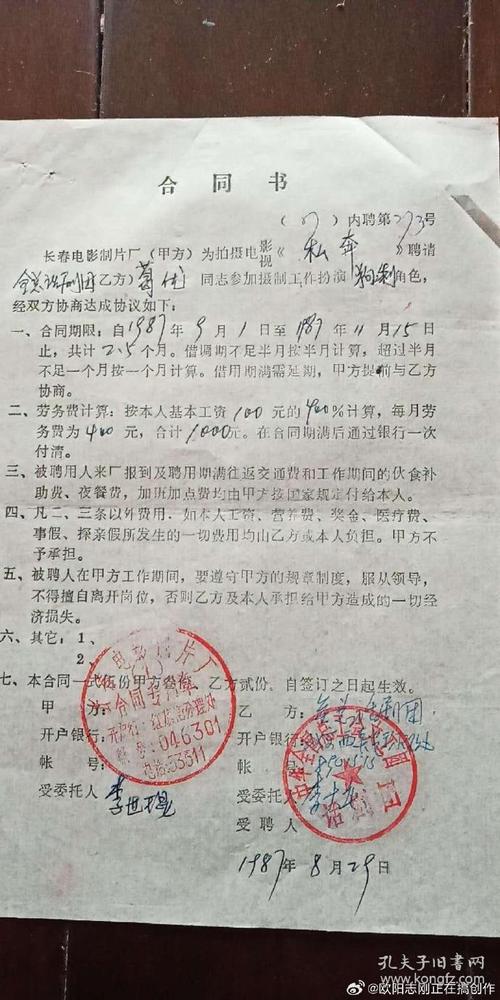 合同书
(87)内聘第273号
长春电影制片厂(甲方)为拍摄电影视《私奔》聘请
全总话剧团乙方)葛优同志参加摄制工作扮演角色,
经双方协商达成协议如下:
一、合同期限:自1987年9月1日至1987年11月15日
止,共计2.5个月。借调期不足半月按半月计算,超过半月
不足一个月按一个月计算。借用期满需延期,甲方提前与乙方
协商。
二、劳务费计算:按本人基本工资100元的400%计算,每月劳
务费为400元,合计1000元。在合同期满后通过银行一次
付清。
三、被聘用人来厂报到及聘用期满往返交通费和工作期间的伙食补
助费、夜餐费,加班加点费均由甲方按国家规定付给本人。
四、凡二、三条以外费用,如本人工资、营养费、奖金、医疗费、
事假、探亲假所发生的一切费用均由乙方或本人负担。甲方不
予承担。
五、被聘人在甲方工作期间,要遵守甲方的规章制度,服从领导,
不得擅自离开岗位,否则乙方及本人承担给甲方造成的一切经
济损失。
六、其它:1、
2、
七、本合同一式伍份甲方叁份,乙方贰份,自签订之日起生效。
甲方:
开户银行:
帐号:
受委托人
乙方:
开户银行:
帐号:
受委托人
受聘人
1987年8月29日
电影制片厂
合同专用章
046301
电话:53311
话剧团
孔夫子旧书网
kongfz.com
@欧阳志刚正在搞创作